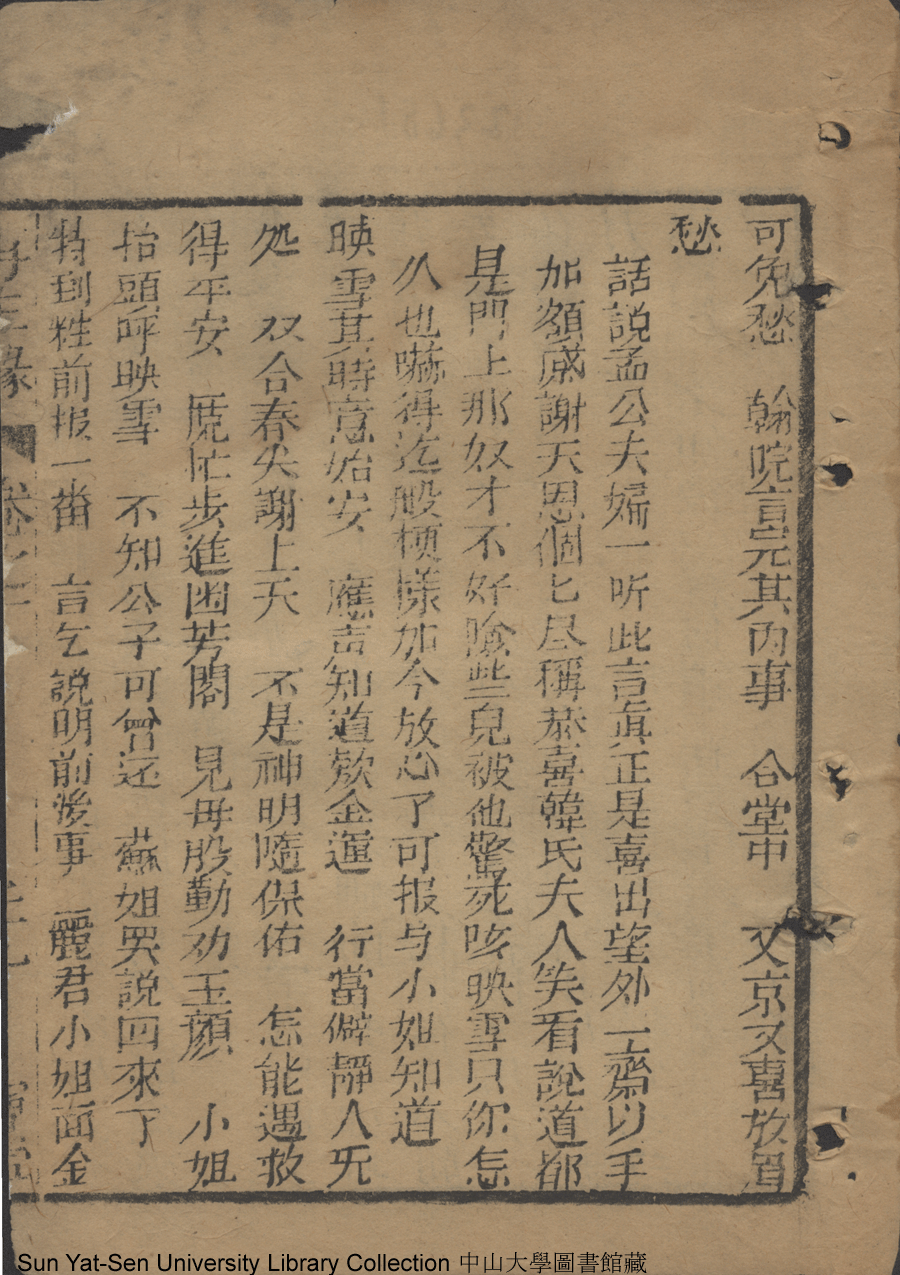 可免愁　翰院言完其內事　合堂中　又京又喜放眉
愁
話說孟公夫婦一听此言真正是喜出望外一齊以手
加額感謝天恩個匕尽稱恭喜韓氏夫人笑看說道都
是門上那奴才不好險些兒被他驚死咳映雪只你怎
久也嚇得这般模樣加今放心了可报与小姐知道
映雪其時意始安　應言知道欵金蓮　行當僻靜人旡
处　双合春尖謝上天　不是神明隨保佑　怎能遇救
得平安　厑忙步進囱芳閣　見毋股勤劝玉顏　小姐
抬頭呼映雪　不知公子可曾还　蘇姐哭說回來了
特到牲前报一畨　言乞說明前後事　麗君小姐面金
生緣　卷之二
Sun Yat-Sen University Library Collection 中山大學圖書館藏